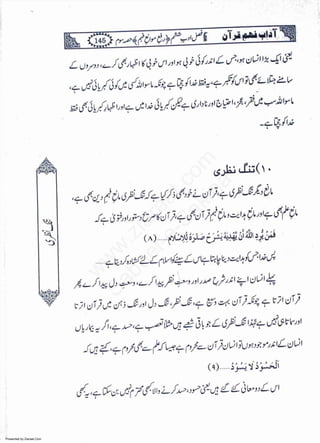 آداب فہم قرآن
فصل اوپر ششم (رفع موانع فہم) حصہ سوم
145
یعنی ایک بڑا انسان ہو، جس کے اندر کوئی خوبی ہو اور اس خوبی کا اظہار بھی کرے، دوسروں کے
سامنے جتلائے بھی تو اس کو تکبر ہے، یہ فقط خدا کو جچتا ہے چونکہ ماسوا اللہ کسی میں کوئی کبریائی نہیں ہے،
ماسوا اللہ سب میں فقر، عجز، احتیاج اور ناداری ہے لیکن کبریائی خدا میں ہے اور اظہار کبریائی بھی
خدا کو جچتا ہے۔
۱۰) تنگ نظری
مانع دیگر تنگ نظری ہے، قرآن نے خود بھی ذکر کیا ہے کہ تنگ نظری مانع فہم دین بھی ہے،
مانع علم بھی ہے اور مانع ہدایت و مانع فہم قرآن بھی ہے، قرآن کا صریح دستور اور فتویٰ ہے کہ
فَمَنْ يُرِدِ اللَّهُ أَنْ يَهْدِيَهُ يَشْرَحْ صَدْرَهُ لِلْإِسْلَامِ ....... (۸)
پس خدا جس کو ہدایت دینا چاہتا ہے اس کے سینے کو اسلام کے لئے کشادہ کر دیتا ہے۔
پہلے انسان اپنے اندر شرح صدر اور وسعت نظر پیدا کرے، وسعت دل پیدا کرے پھر
قرآن اترتا ہے چونکہ قرآن بہت وسیع ہے، تنگ نظر، تنگ دل اور تنگ ذہن میں قرآن اترتا
اور سماتا ہی نہیں ہے لہٰذا تنگ نظری کے جو باقی شعبے ہیں مثلاً تعصب ہے، حسد ہے، اگر یہ بیماریاں
انسان کے اندر موجود ہوں تو انسان قرآن سے محروم ہے جیسا کہ علم سے بھی محروم ہے، کہتے ہیں کہ
اَلْحَسُوْدُ لَا يَسُوْدُ ....... (۹)
اس کے دو معانی کئے گئے ہیں یعنی حسود، حسد کرنے والا کبھی محترم نہیں بن سکتا ہے، یہ کبھی
تنگ نظری
Presented by Ziaraat.Com